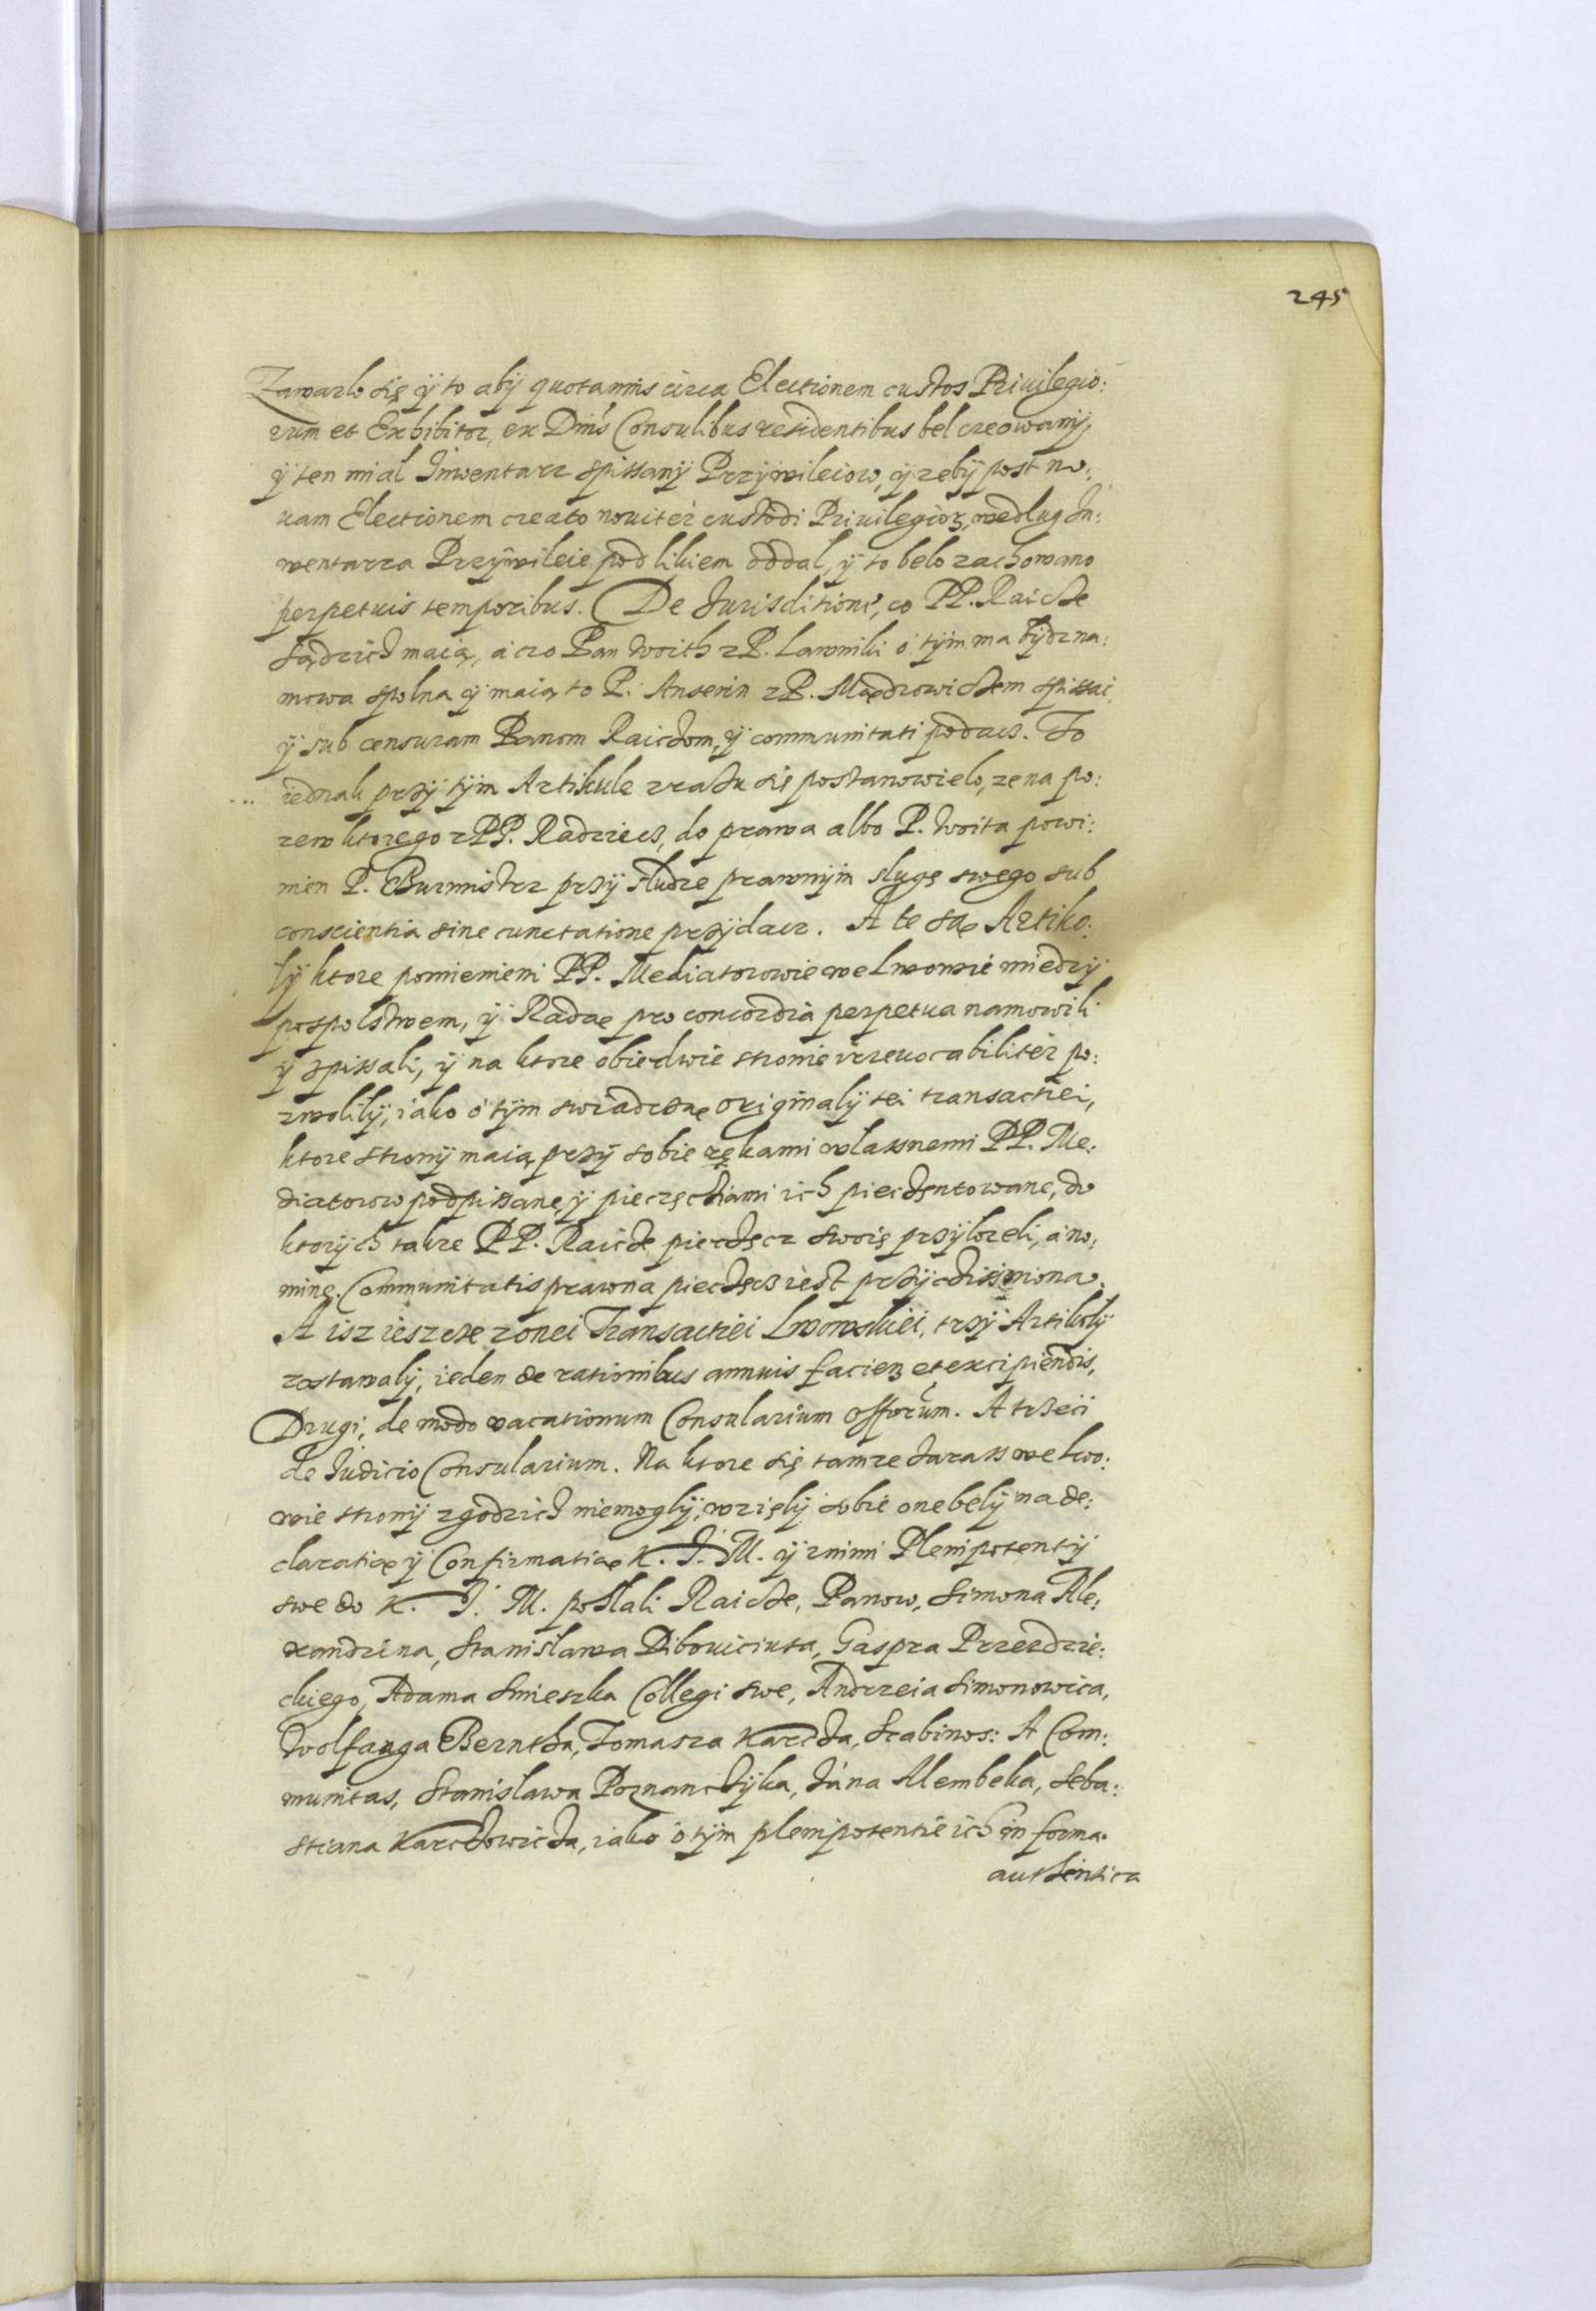 245
Zawarlo się ÿ to abÿ quotannis circa Electionem custos Priuilegio:
rum et Exhibitor, ex Dnis Consulibus residentibus bel creowanÿ,
ÿ ten mial Inwentarz spissanÿ Przÿwileiow, ÿ zebÿ post no:
uam Electionem creato nouiter custodi Priuilegioꝝ, wedlug In:
wentarza Przÿwileie pod likiem oddal, ÿ to belo zachowano
perpetuis temporibus. De Jurisditione, co PP. Raicze
sądzicz maią, a czo Pan Woith z P. Lawniki o tÿm ma bÿdz na:
mowa spolna ÿ maią to P. Anserin z P. Mądrowiczem spissac,
ÿ sub censuram Panom Raiczom, ÿ communitati podacz. To
... iednak przÿ tÿm Artikule zrazu się postanowielo, ze na po:
zew ktorego z PP. Radziecz, do prawa albo P. Woita powi:
nien P. Burmistrz przÿ sludze prawnÿm slugę swego sub
conscientia sine cunctatione przÿdacz. A te są Artiko:
lÿ ktore pomienieni PP. Mediatorowie we Lwowie miedzÿ
pospolstwem, ÿ Radą pro concordia perpetua namowili
ÿ spissali, ÿ na ktore obiedwie stronie irreuocabiliter po:
zwolilÿ, iako o tÿm swiadczą originalÿ tei transactiei,
ktore stronÿ maią przÿ sobie rękami wlassnemi PP. Me:
diatorow podpissane, ÿ pieczęciami ich pieczętowane, do
ktorÿch takze PP. Raicze pieczęcz swoię przÿlozeli, a no:
mine Communitatis prawna pieczęcz iest przÿcissniona.
A isz iescze z onei Transactiei Lwowskiei, trzÿ Artikolÿ
zostawalÿ, ieden de rationibus annuis faciens et excipiendis,
Drugi, de modo vacationum Consularium offorum. A trzeci
de Judicio Consularium. Na ktore się tamze zarass we Lwo:
wie stronÿ zgodzicz niemoglÿ, wzięlÿ sobie one belÿ na de:
claratią ÿ Confirmatią K. J. M. ÿ z nimi Plenipotentÿ
swe do K. J. M. poslali Raicze, Panow, Simona Ale:
xandrina, Stanislawa Dibouiciusa, Gaspra Przezdzie:
ckiego, Adama Smieszka Collegi swe, Andrzeia Simonowica,
Wolfanga Berntha, Tomasza Karcza, Scabinos: A Com:
munitas, Stanislawa Poznanczÿka, Jana Alembeka, Seba:
stiana Karczowicza, iako o tÿm plenipotentie ich in forma
authentica